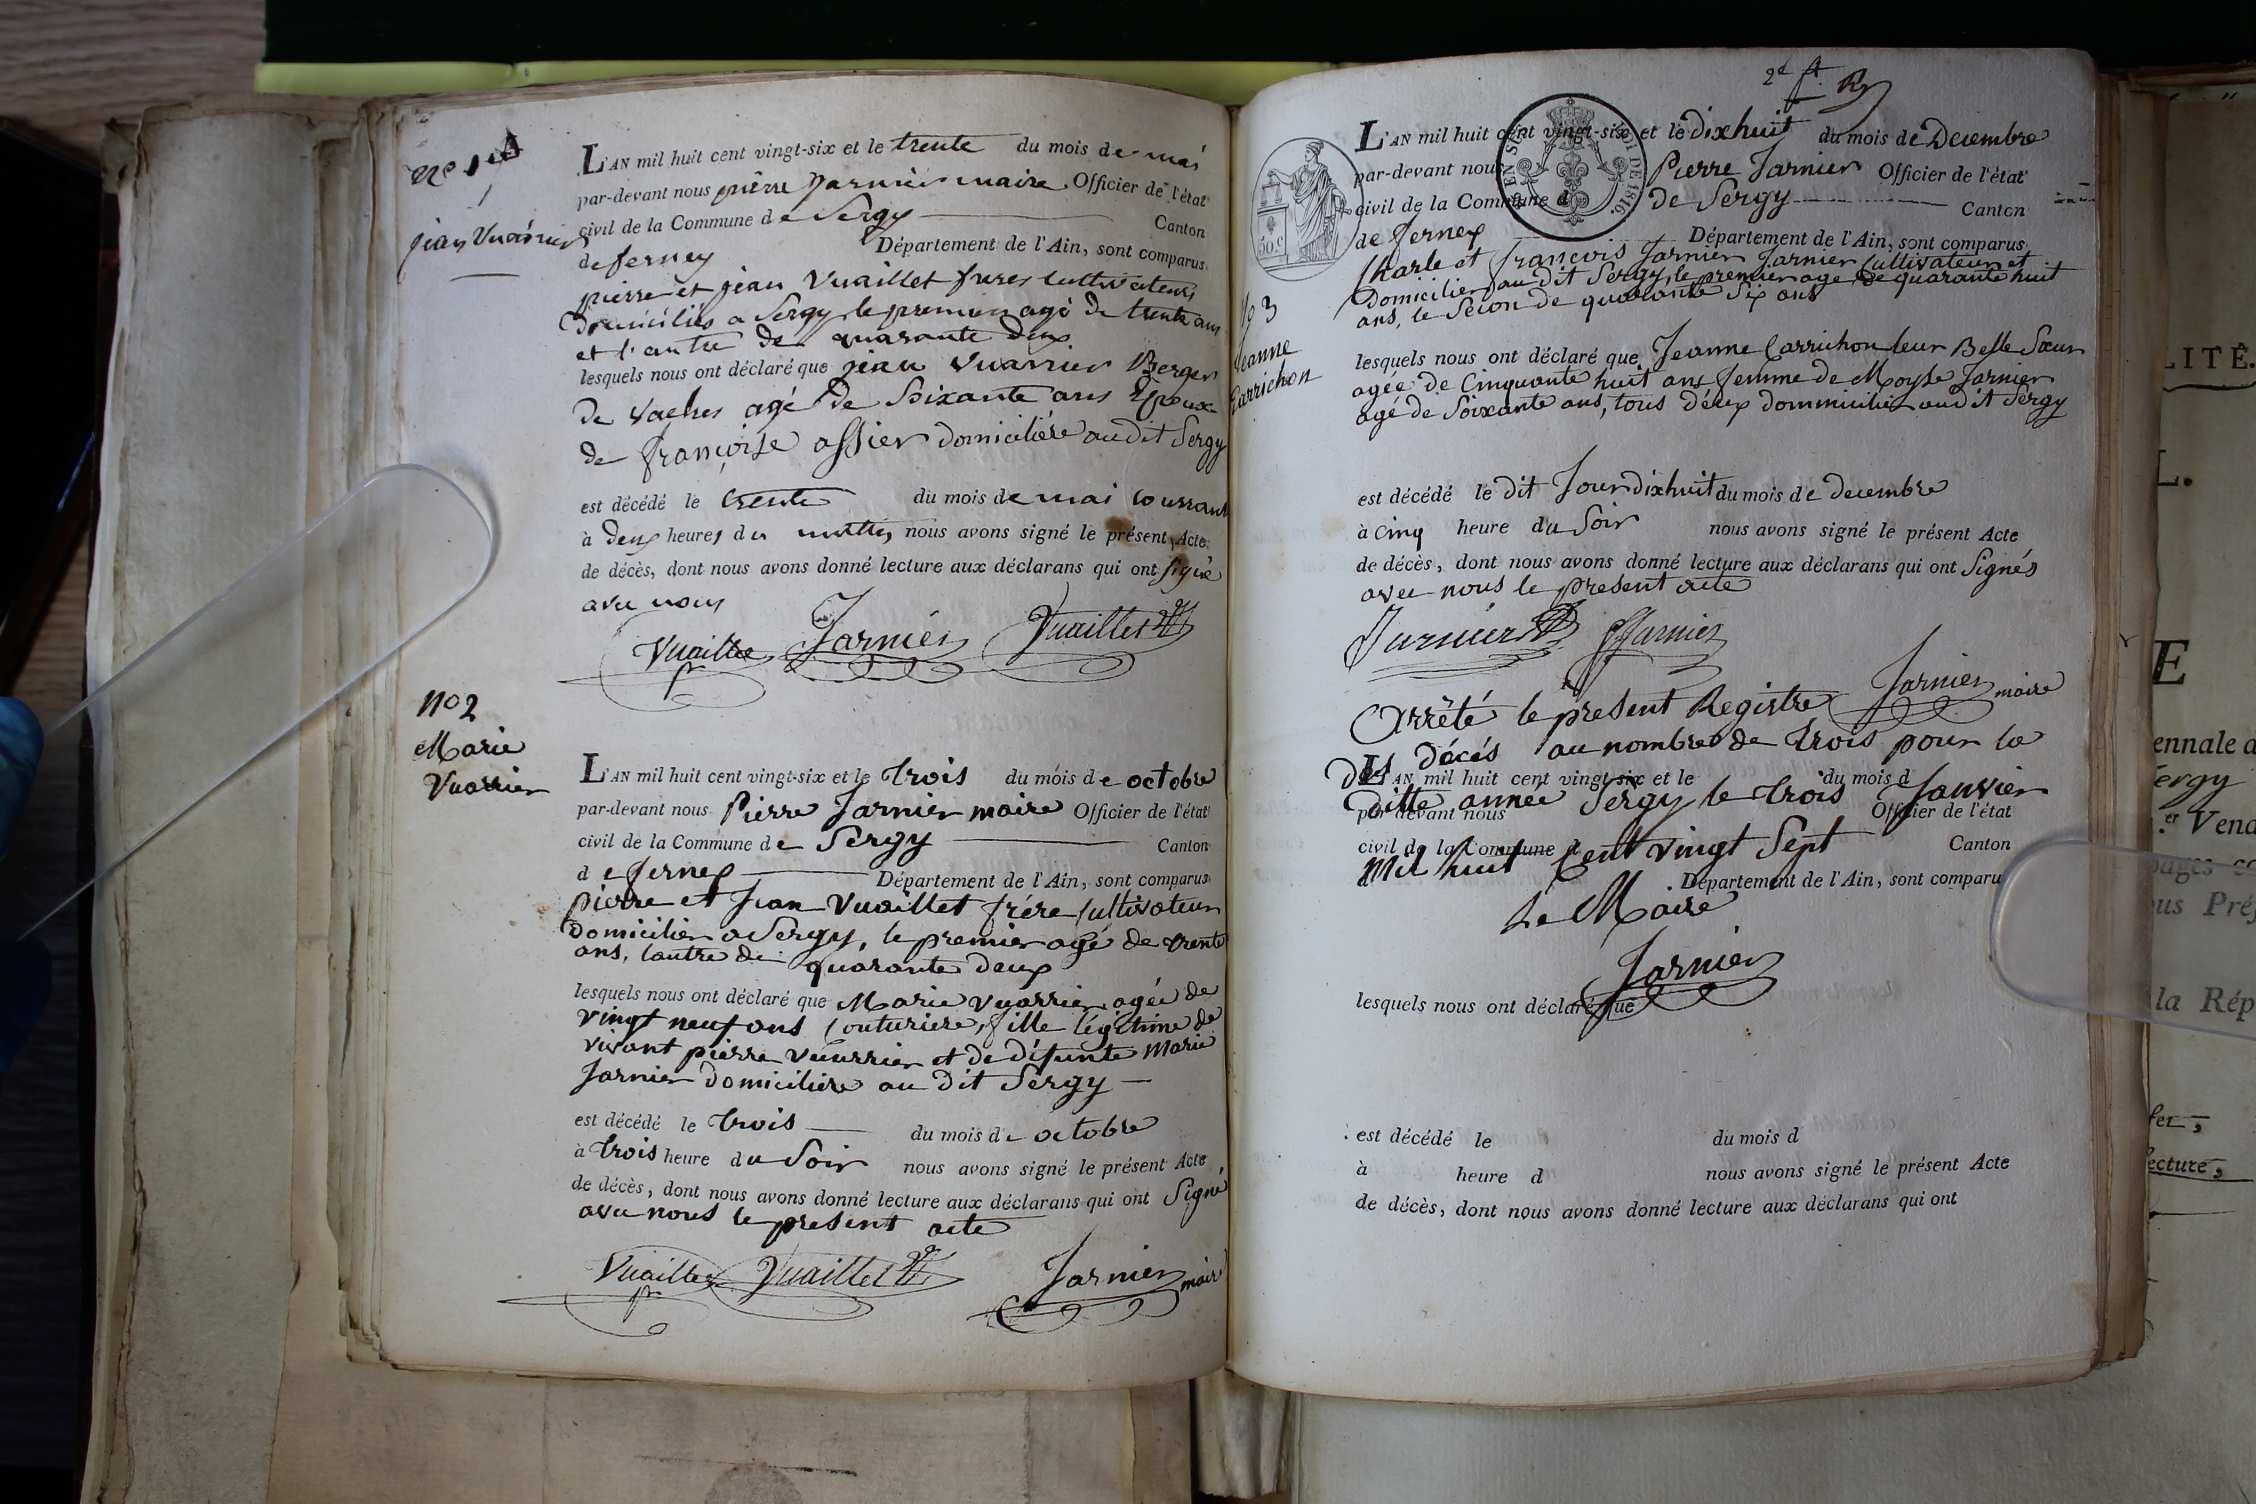 No 1er
jean Vuarrier
L'AN mil huit cent vingt-six et le trente du mois de mai
par-devant nous pierre Jarnier maire Officier de l'état
civil de la Commune de Sergy Canton
de ferney Département de l'Ain, sont comparus
pierre et jean Vuaillet freres cultivateurs
Domiciliés a Sergy, le premier agé de trente ans
et l'autre de quarante deux
lesquels nous ont déclaré que jean Vuarrier Berger
de vaches agé de Soixante ans Epoux
de françoise assier domicilière audit Sergy
est décédé le trente du mois de mai courrant
à deux heures du matin nous avons signé le présent Acte
de décès, dont nous avons donné lecture aux déclarans qui ont signé
avec nous
Vuaillet Jarnier Vuaillet
pr
No 2
Marie
Vuarrier
L'AN mil huit cent vingt-six et le trois du mois de octobre
par-devant nous Pierre Jarnier maire Officier de l'état
civil de la Commune de Sergy Canton
de ferney Département de l'Ain, sont comparus
pierre et Jean Vuaillet frére Cultivateur
domicilier a Sergy, le premier agé de trente
ans, l'autre de quarante deux
lesquels nous ont déclaré que Marie Vuarrier agée de
vingt neuf ans Couturiere, fille légitime de
vivant pierre Vuarrier et de défunte Marie
Jarnier domiciliére au dit Sergy
est décédé le trois du mois de octobre
à trois heure du Soir nous avons signé le présent Acte
de décès, dont nous avons donné lecture aux déclarans qui ont Signé
avec nous le present acte
Vuaillet Vuaillet Jarnier maire
pr
2e ft
L'AN mil huit cent vingt-six et le dixhuit du mois de Decembre
par-devant nous Pierre Jarnier Officier de l'état
civil de la Commune d de Sergy Canton
de ferney Département de l'Ain, sont comparus
50 c
DE 1816.
No 3
Jeanne
Carrichon
Charle et françois Jarnier Jarnier Cultivateur et
Domicilier au dit Sergy, le premier age de quarante huit
ans, le Secon de quarante Six ans
lesquels nous ont déclaré que Jeanne Carrichon leur Belle Sœur
agée de Cinquante huit ans femme de Moyse Jarnier
agé de Soixante ans, tous déux dommicilier audit Sergy
est décédé le dit Jour dixhuit du mois de decembre
à cinq heure du Soir nous avons signé le présent Acte
de décès, dont nous avons donné lecture aux déclarans qui ont Signés
avec nous le present acte
Jarnier Jarnier
Jarnier maire
Arrêté le present Registre
Des décés au nombre de trois pour la
L'AN mil huit cent vingt-six et le du mois d
ditte année Sergy le trois Janvier
par-devant nous Officier de l'état
civil de la Commune d Canton
Mil huit Cent vingt Sept
Département de l'Ain, sont comparu
Le Maire
Jarnier
lesquels nous ont déclaré que
est décédé le du mois d
à heure d nous avons signé le présent Acte
de décès, dont nous avons donné lecture aux déclarans qui ont
LITÉ.
L.
E
ennale d
ergy
er Vend
pages co
us Préf
la Rép
fer,
lecture,